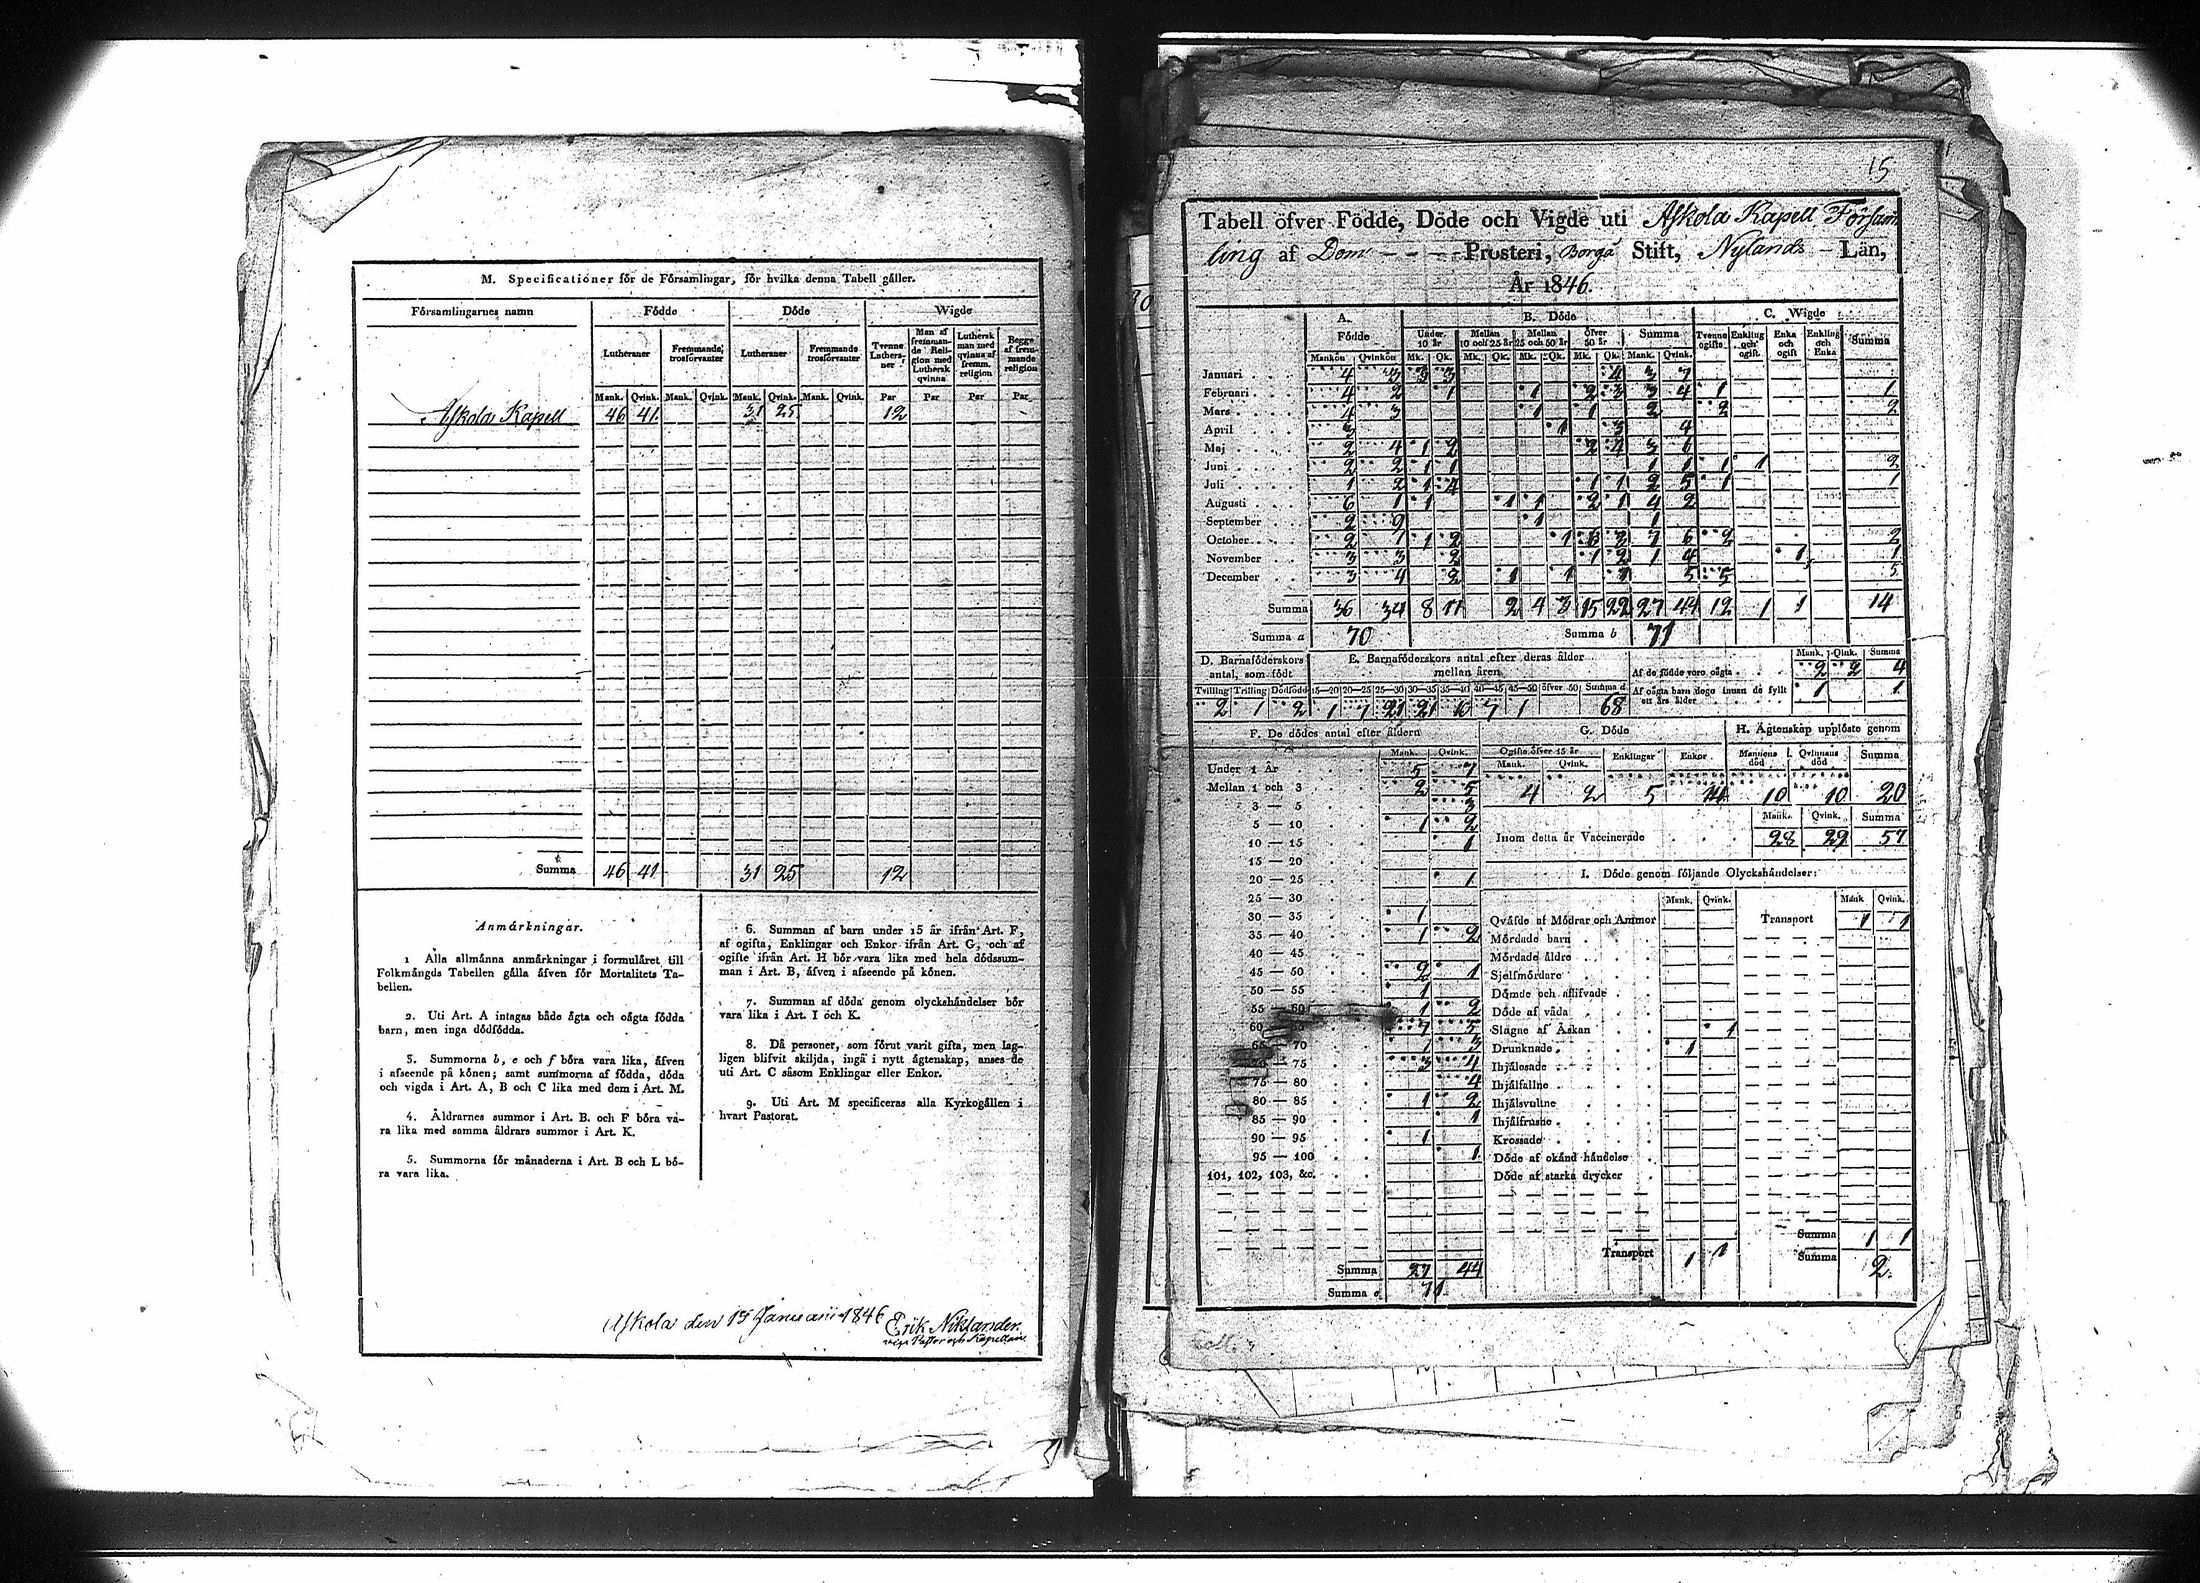 M. Specificationer för de Församlingar, för hvilka denna Tabell gäller.
Församlingarnes namn Födde Döde Wigde
Lutheraner Fremmande trosförvanter Lutheraner Fremmande trosförvanter Tvenne Lutheraner Man af fremmande Religion med Luthersk qvinna Luthersk man med qvinna af fremm. religion Begge af fremmande religion
Mank. Qvink. Mank. Qvink. Mank. Qvink. Mank. Qvink. Par Par Par Par
Askola Kapell 46 41 31 25 12
Summa 46 41 31 25 12
Anmärkningar.
1 Alla allmänna anmärkningar i formuläret till
Folkmängds Tabellen gälla äfven för Mortalitets Ta-
bellen.
2. Uti Art. A intagas både ägta och oägta födda
barn, men inga dödfödda.
3. Summorna b, e och f böra vara lika, äfven
i afseende på könen; samt summorna af födda, döda
och vigda i Art. A, B och C lika med dem i Art. M.
4. Äldrarnes summor i Art. B. och F böra va-
ra lika med samma äldrars summor i Art. K.
5. Summorna för månaderna i Art. B och L bö-
ra vara lika.
6. Summan af barn under 15 år ifrån Art. F,
af ogifta, Enklingar och Enkor ifrån Art. G, och af
ogifte ifrån Art. H bör vara lika med hela dödssum-
man i Art. B, äfven i afseende på könen.
7. Summan af döda genom olyckshändelser bör
vara lika i Art. I och K.
8. Då personer, som förut varit gifta, men lag-
ligen blifvit skiljda, ingå i nytt ägtenskap, anses de
uti Art. C såsom Enklingar eller Enkor.
9. Uti Art. M specificeras alla Kyrkogällen i
hvart Pastorat.
Askola den 15 Januarii 1846 Erik Niklander.
vice Pastor och Kapellan
15
Tabell öfver Födde, Döde och Vigde uti Askola Kapell Försam
ling af Dom Prosteri, Borgå Stift, Nylands Län,
År 1846.
A. Födde B. Döde C. Wigde
Under 10 år Mellan 10 och 25 år Mellan 25 och 50 år öfver 50 år Summa Tvenne ogifte Enkling och ogift Enka och ogift Enkling och Enka Summa
Mankön Qvinkön Mk. Qk. Mk. Qk. Mk. Qk. Mk. Qk. Mank. Qvink.
Januari 4 3 3 3 4 3 7
Februari 4 2 1 1 2 3 3 4 1 1
Mars 4 3 1 1 2 2 2
April 3 1 3 4
Maj 2 4 1 2 2 4 3 6
Juni 2 2 1 1 1 1 1 1 2
Juli 1 2 1 4 1 1 2 5 1 1
Augusti 6 1 1 1 1 2 1 4 2
September 2 9 1 1
October 2 1 1 2 1 6 3 7 6 2 2
November 3 3 2 1 2 1 4 1 1
December 3 4 2 1 1 1 5 5 5
Summa 36 34 8 17 2 4 3 15 22 27 44 12 1 1 14
Summa a 70 Summa b 71
D. Barnaföderskors antal, som födt E. Barnaföderskors antal efter deras ålder mellan åren
Mank. Qink. Summa
Af de födde voro oägta 2 2 4
Tvilling Trilling Dödfödd 15—20 20—25 25—30 30—35 35—40 40—45 45—50 öfver 50 Summa d
Af oägta barn dogo innan de fyllt ett års ålder 1 1
2 1 2 1 7 21 21 10 7 1 68
F. De dödes antal efter åldern G. Döde H. Ägtenskap upplöste genom
Mank. Qvink.
Ogifte öfver 15 år Enklingar Enkor Mannens död Qvinnans död Summa
Mank. Qvink.
4 2 5 14 10 10 20
Mank. Qvink. Summa
Inom detta år Vaccinerade 28 29 57
Under 1 År 5 7
Mellan 1 och 3 2 5
3 — 5 3
5 — 10 1 2
10 — 15 1
15 — 20
20 — 25 1
25 — 30
30 — 35 1
35 — 40 1 2
40 — 45
45 — 50 2 1
50 — 55 1
55 — 60 1 2
60 7 5
70 1 3
75 3 4
75 — 80 4
80 — 85 1 2
85 — 90 1
90 — 95 1
95 — 100 1
101, 102, 103, &c.
Summa 27 44
Summa e 71
I. Döde genom följande Olyckshändelser:
Mank. Qvink. Mank Qvink.
Qväfde af Mödrar och Ammor Transport 1 1
Mördade barn
Mördade äldre
Sjelfmördare
Dömde och aflifvade
Döde af våda
Slagne af Åskan 1
Drunknade 1
Ihjälosade
Ihjälfallne
Ihjälsvultne
Ihjälfrusne
Krossade
Döde af okänd händelse
Döde af starka drycker
Summa 1 1
Transport 1 1 Summa 2